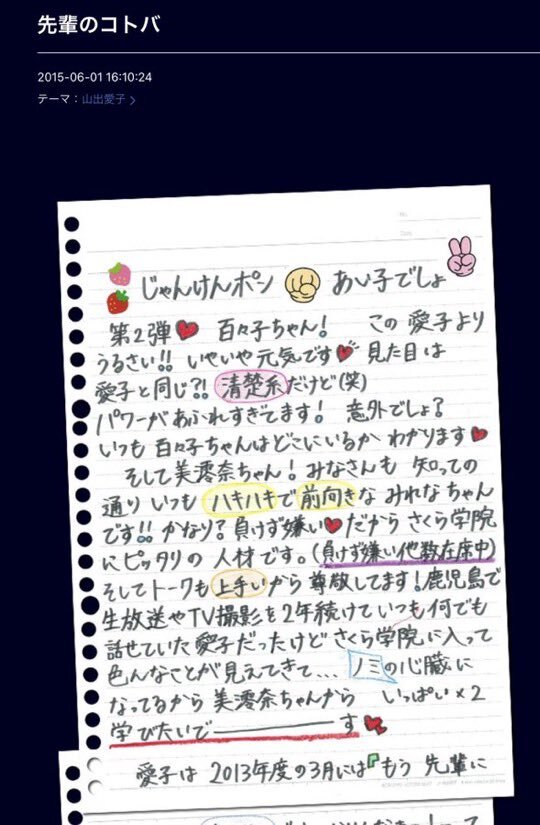 先輩のコトバ
2015-06-01 16:10:24
テーマ：山出愛子 >
No.
Date
じゃんけんポン あい子でしょ
第2弾 百々子ちゃん! この愛子より
うるさい!! いやいや元気です 見た目は
愛子と同じ?! 清楚系だけど(笑)
パワーがあふれすぎてます! 意外でしょ?
いつも百々子ちゃんはどこにいるかわかります
そして美澪奈ちゃん! みなさんも知っての
通りいつもハキハキで前向きなみれなちゃん
です!! かなり?負けず嫌い だからさくら学院
にピッタリの人材です。(負けず嫌い他数在席中)
そしてトークも上手いから尊敬してます!鹿児島で
生放送やTV撮影を2年続けていつも何でも
話せていた愛子だったけどさくら学院に入って
色んなことが見えてきて... ノミの心臓に
なってるから美澪奈ちゃんから いっぱい×2
学びたいで――――す
愛子は2013年度の3月には「もう先輩に